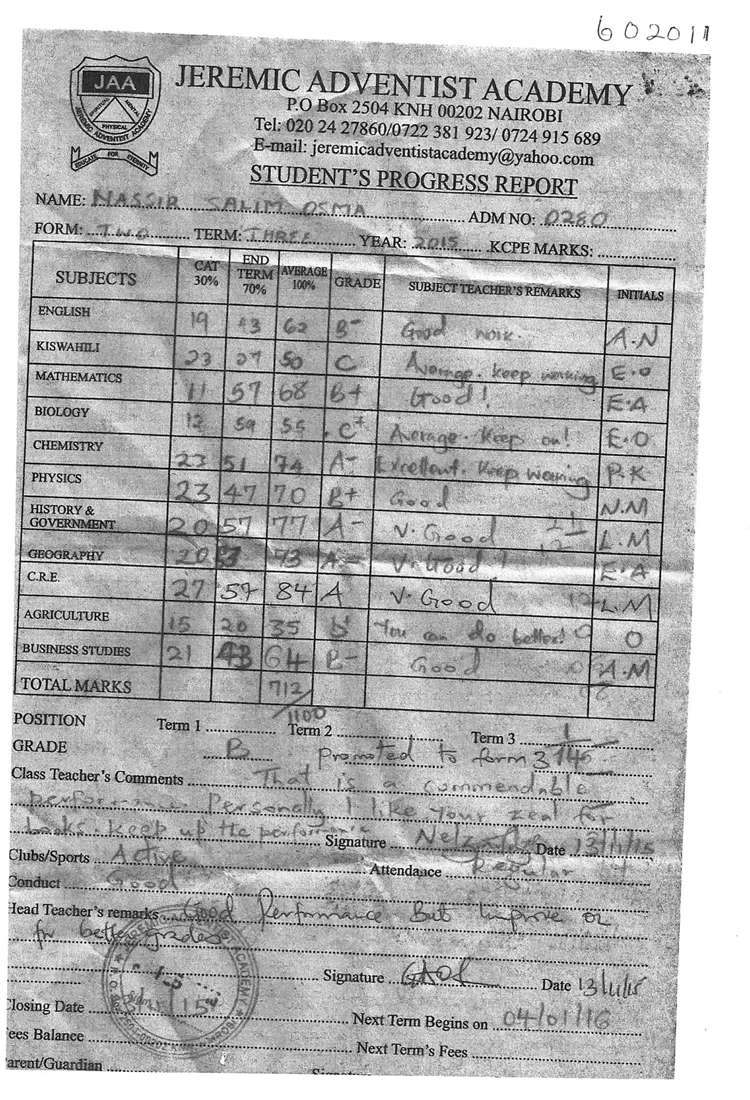 602011
JAA
SPIRITUAL MENTAL
PHYSICAL
JEREMIC ADVENTIST ACADEMY
EDUCATE FOR ETERNITY
JEREMIC ADVENTIST ACADEMY
P.O Box 2504 KNH 00202 NAIROBI
Tel: 020 24 27860/0722 381 923/ 0724 915 689
E-mail: jeremicadventistacademy@yahoo.com
STUDENT'S PROGRESS REPORT
NAME: NASSIR SALIM OSMA ADM NO: 0280
FORM: TWO TERM: THREE YEAR: 2015 KCPE MARKS:
SUBJECTS CAT 30% END TERM 70% AVERAGE 100% GRADE SUBJECT TEACHER'S REMARKS INITIALS
ENGLISH 19 43 62 B- Good work. A.N
KISWAHILI 23 27 50 C Average. keep working E.O
MATHEMATICS 11 57 68 B+ Good! E.A
BIOLOGY 12 59 55 C+ Average. Keep on! E.O
CHEMISTRY 23 51 74 A- Excellent. Keep working P.K
PHYSICS 23 47 70 B+ Good N.M
HISTORY & GOVERNMENT 20 57 77 A- V. Good L.M
GEOGRAPHY 20 73 A- V. Good! E.A
C.R.E. 27 57 84 A V. Good L.M
AGRICULTURE 15 20 35 You can do better! O
BUSINESS STUDIES 21 43 64 B- Good A.M
TOTAL MARKS 712/1100
POSITION Term 1 Term 2 Term 3 1/46
GRADE B Promoted to form 3
Class Teacher's Comments That is a commendable
performance. Personally I like your zeal for
books. Keep up the performance
Signature Date 13/11/15
Clubs/Sports Active Attendance Regular
Conduct Good
Head Teacher's remarks Good Performance But improve
for better grades
Signature Date 13/11/15
Closing Date Next Term Begins on 04/01/16
ees Balance Next Term's Fees
arent/Guardian